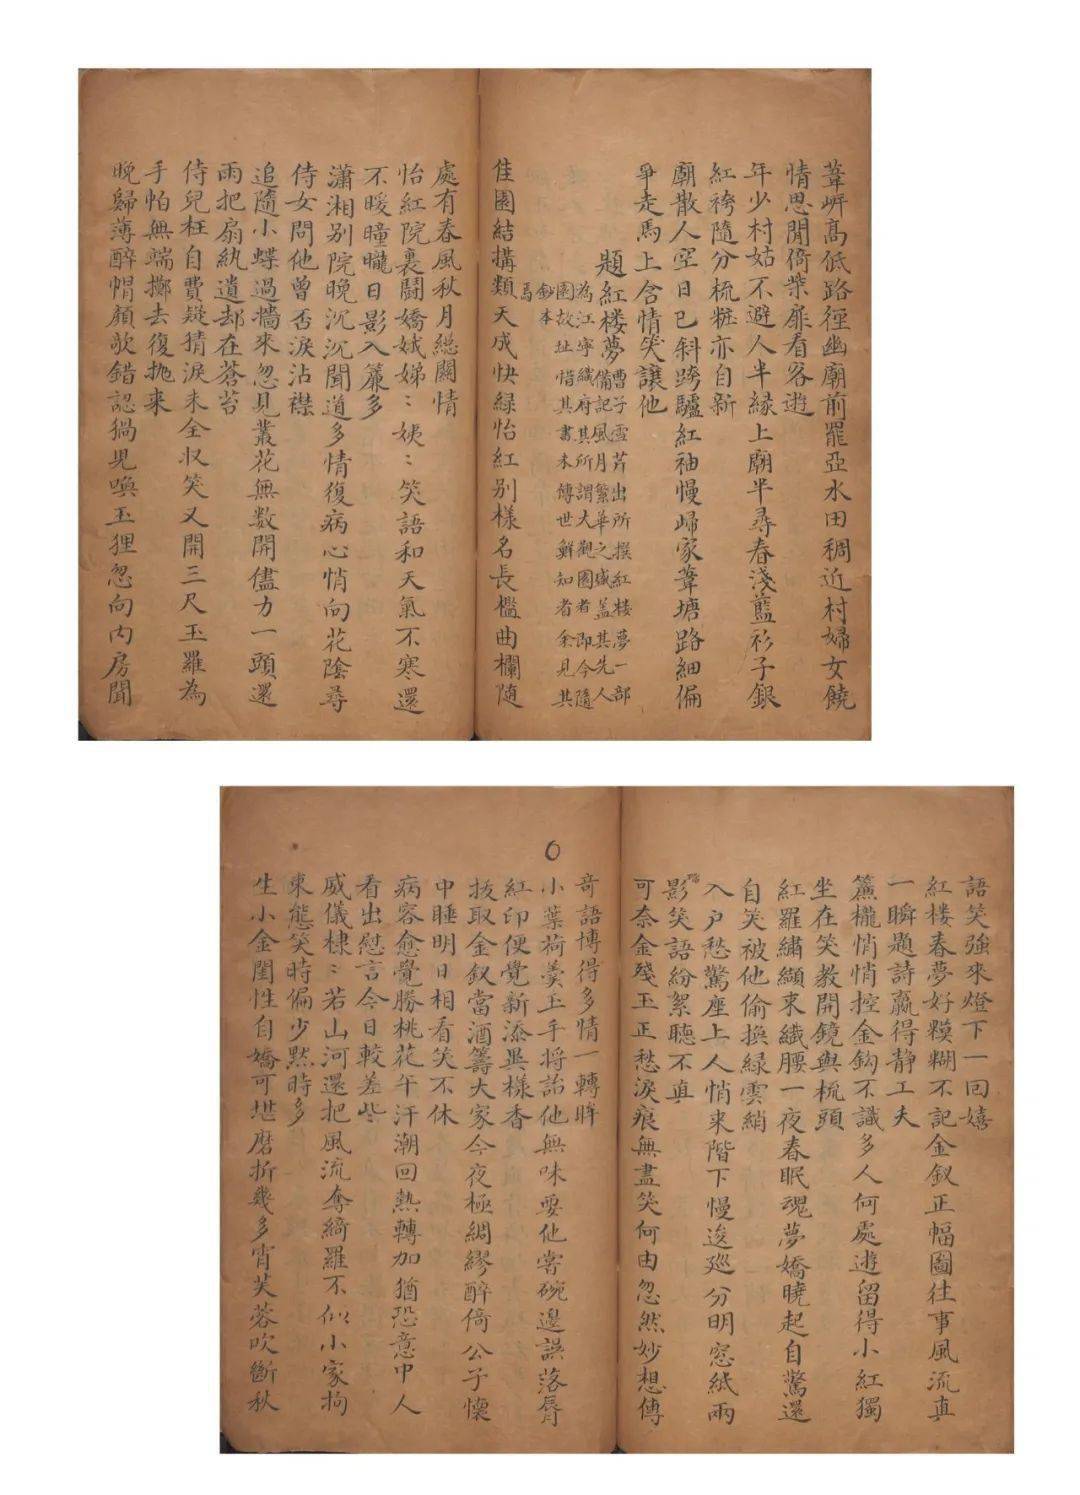 葦岍高低路徑幽廟前罷亞水田稠近村婦女饒
情思閒倚柴扉看客遊
年少村姑不避人半緣上廟半尋春淺藍衫子銀
紅袴隨分梳粧亦自新
廟散人空日已斜跨驢紅袖慢歸家葦塘路細偏
爭走馬上含情笑讓他
題紅樓夢
曹子雪芹出所撰紅樓夢一部
備記風月繁華之盛蓋其先人
為江寧織府其所謂大觀園者即今隨
園故址惜其書未傳世鮮知者余見其
鈔本
焉
佳園結搆類天成快綠怡紅别樣名長檻曲欄隨
處有春風秋月緫關情
怡紅院裏鬬嬌娥娣〻姨〻笑語和天氣不寒還
不暖曈曨日影入簾多
瀟湘别院晚沉沉聞道多情復病心悄向花陰尋
侍女問他曾否淚沾襟
追隨小蝶過墻來忽見叢花無数開儘力一頭還
雨把扇紈遺却在蒼苔
侍兒枉自費疑猜淚未全収笑又開三尺玉羅為
手帕無端擲去復抛来
晚歸薄醉帽顏欹錯認猧兒喚玉狸忽向内房聞
語笑強来燈下一回嬉
紅楼春夢好糢糊不記金釵正幅圖往事風流真
一瞬題詩嬴得静工夫
簾櫳悄悄控金鈎不識多人何處遊留得小紅獨
坐在笑教開鏡與梳頭
紅羅繡纈束纖腰一夜春眠魂夢嬌曉起自驚還
自笑被他偷換綠雲綃
入户愁驚座上人悄来階下慢逡廵分明窓紙兩
璫影笑語紛絮聽不真
可奈金殘玉正愁淚痕無盡笑何由忽然妙想傳
竒語博得多情一轉眸
小葉荷羹玉手将詒他無味要他嘗碗邊誤落唇
紅印便覺新添異樣香
拔取金釵當酒籌大家今夜極綢繆醉倚公子懷
中睡明日相看笑不休
病容愈覺勝桃花午汗潮回熱轉加猶恐意中人
看出慰言今日較差些
威儀棣〻若山河還把風流奪綺羅不似小家拘
束態笑時偏少黙時多
生小金閨性自嬌可堪磨折幾多宵芙蓉吹斷秋